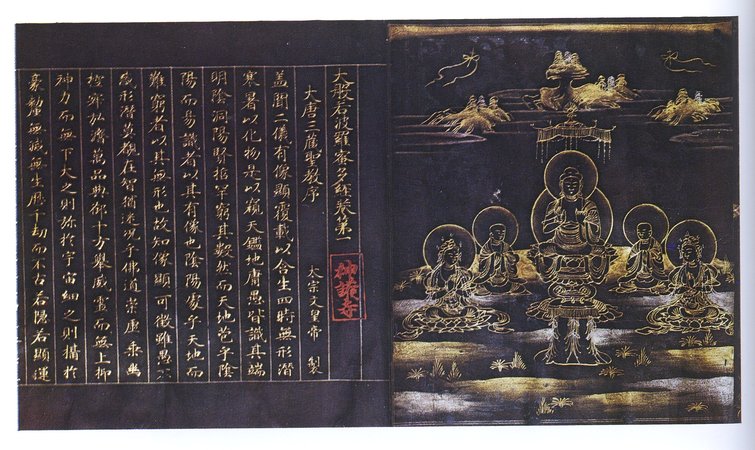 大般若波羅蜜多經卷第一
神護寺
大唐三藏聖教序
太宗文皇帝 製
蓋聞二儀有像顯覆載以含生四時無形潛
寒暑以化物是以窺天鑑地庸愚皆識其端
明陰洞陽賢哲罕窮其數然而天地苞乎陰
陽而易識者以其有像也陰陽處乎天地而
難窮者以其無形也故知像顯可徵雖愚不
惑形潛莫覩在智猶迷況乎佛道崇虛乘幽
控寂弘濟萬品典御十方舉威靈而無上抑
神力而無下大之則弥於宇宙細之則攝於
豪釐無滅無生歷千劫而不古若隱若顯運